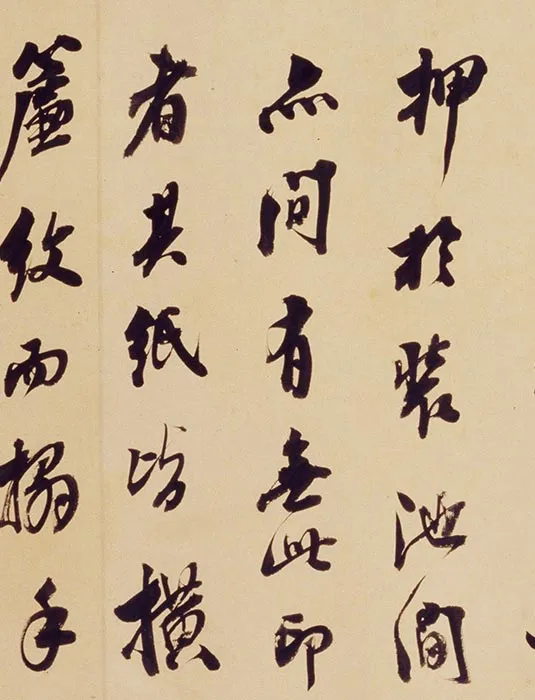 押於裝池間
亦間有無此印
者其紙皆橫
簾紋而搨手